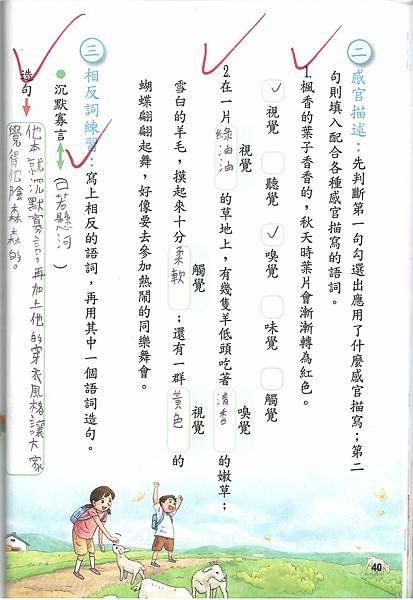 二 感官描述：先判斷第一句勾選出應用了什麼感官描寫；第二
句則填入配合各種感官描寫的語詞。
1.楓香的葉子香香的，秋天時葉片會漸漸轉為紅色。
✓視覺 聽覺 ✓嗅覺 味覺 觸覺
2.在一片綠油油的草地上，有幾隻羊低頭吃著清香的嫩草；
視覺 嗅覺
雪白的羊毛，摸起來十分柔軟；還有一群黃色的
觸覺 視覺
蝴蝶翩翩起舞，好像要去參加熱鬧的同樂舞會。
三 相反詞練習：寫上相反的語詞，再用其中一個語詞造句。
●沉默寡言↔（口若懸河）
造句→他本就沉默寡言，再加上他的穿衣風格，讓大家
覺得他陰森森的。
40